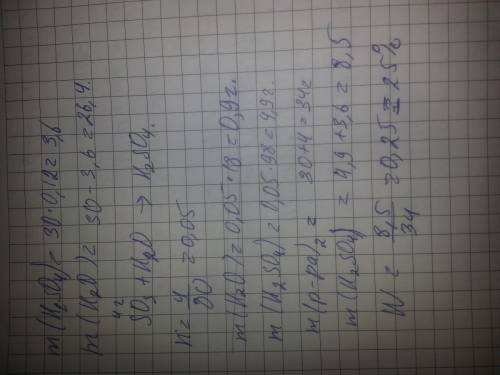 m(H₂SO₄) = 30·0,12 = 3,6
m(H₂O) = 30 - 3,6 = 26,4.
4г
SO₃ + H₂O → H₂SO₄.
n = 4/80 = 0,05
m(H₂O) = 0,05·18 = 0,9г.
m(H₂SO₄) = 0,05·98 = 4,9г.
m(р-ра)₂ = 30+4 = 34г
m(H₂SO₄) = 4,9+3,6 = 8,5
W = 8,5/34 = 0,25 = 25%